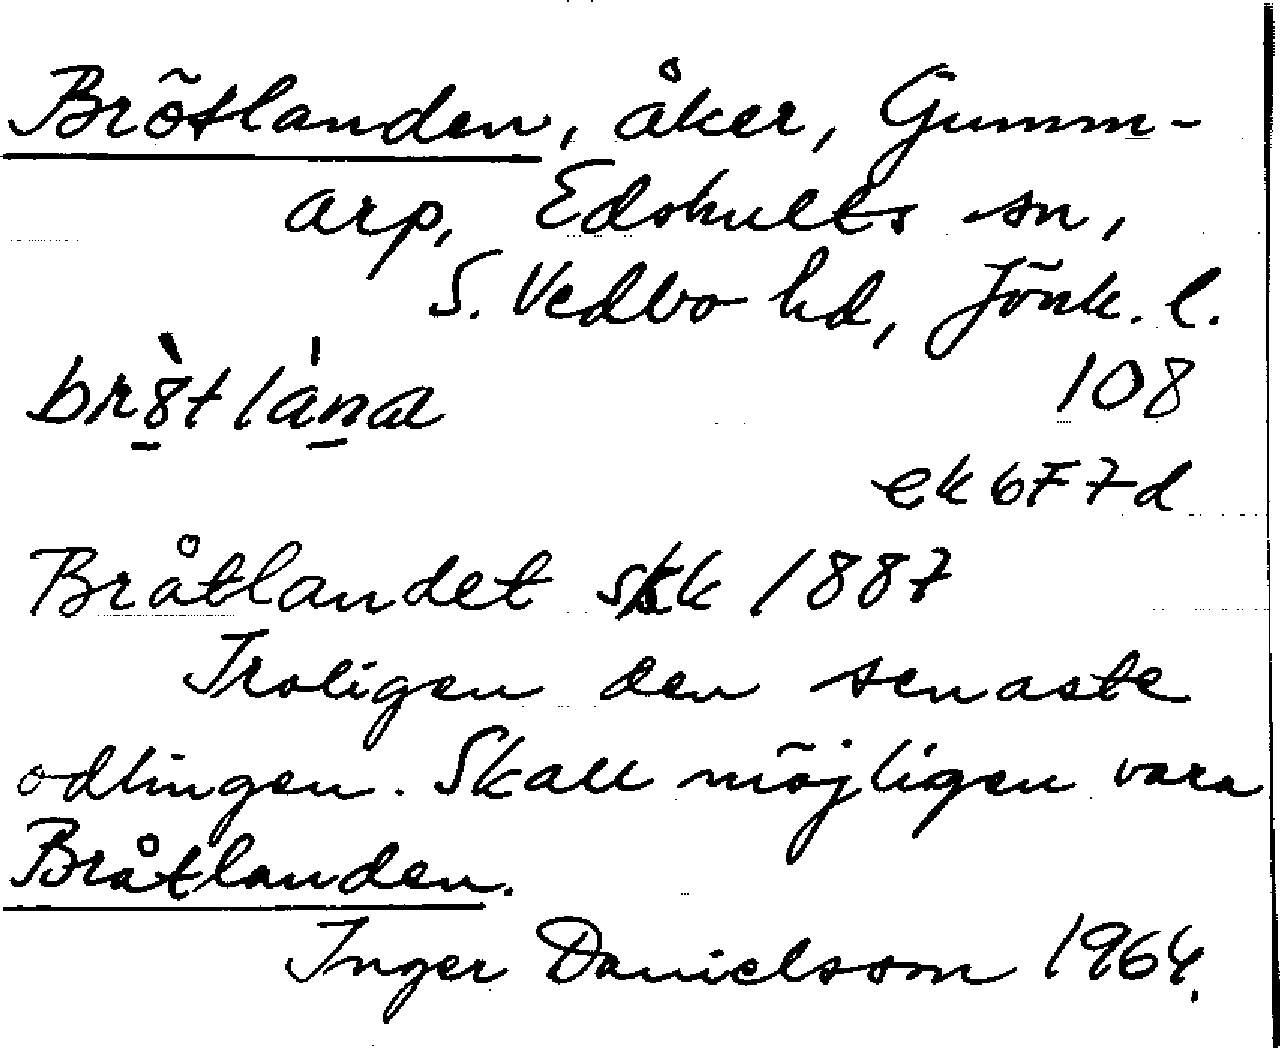 Brötlanden, åker, Gumm-
arp, Edshults sn,
S. Vedbo hd, Jönk. l.
108
ek 6F7d
Bråtlandet skk 1887
Troligen den senaste
odlingen. Skall möjligen vara
Bråtlanden.
Inger Danielsson 1964.